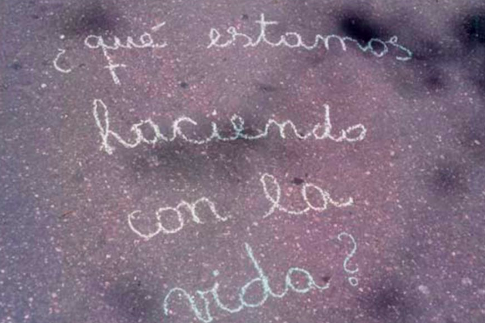 ¿qué estamos
haciendo
con la
vida?